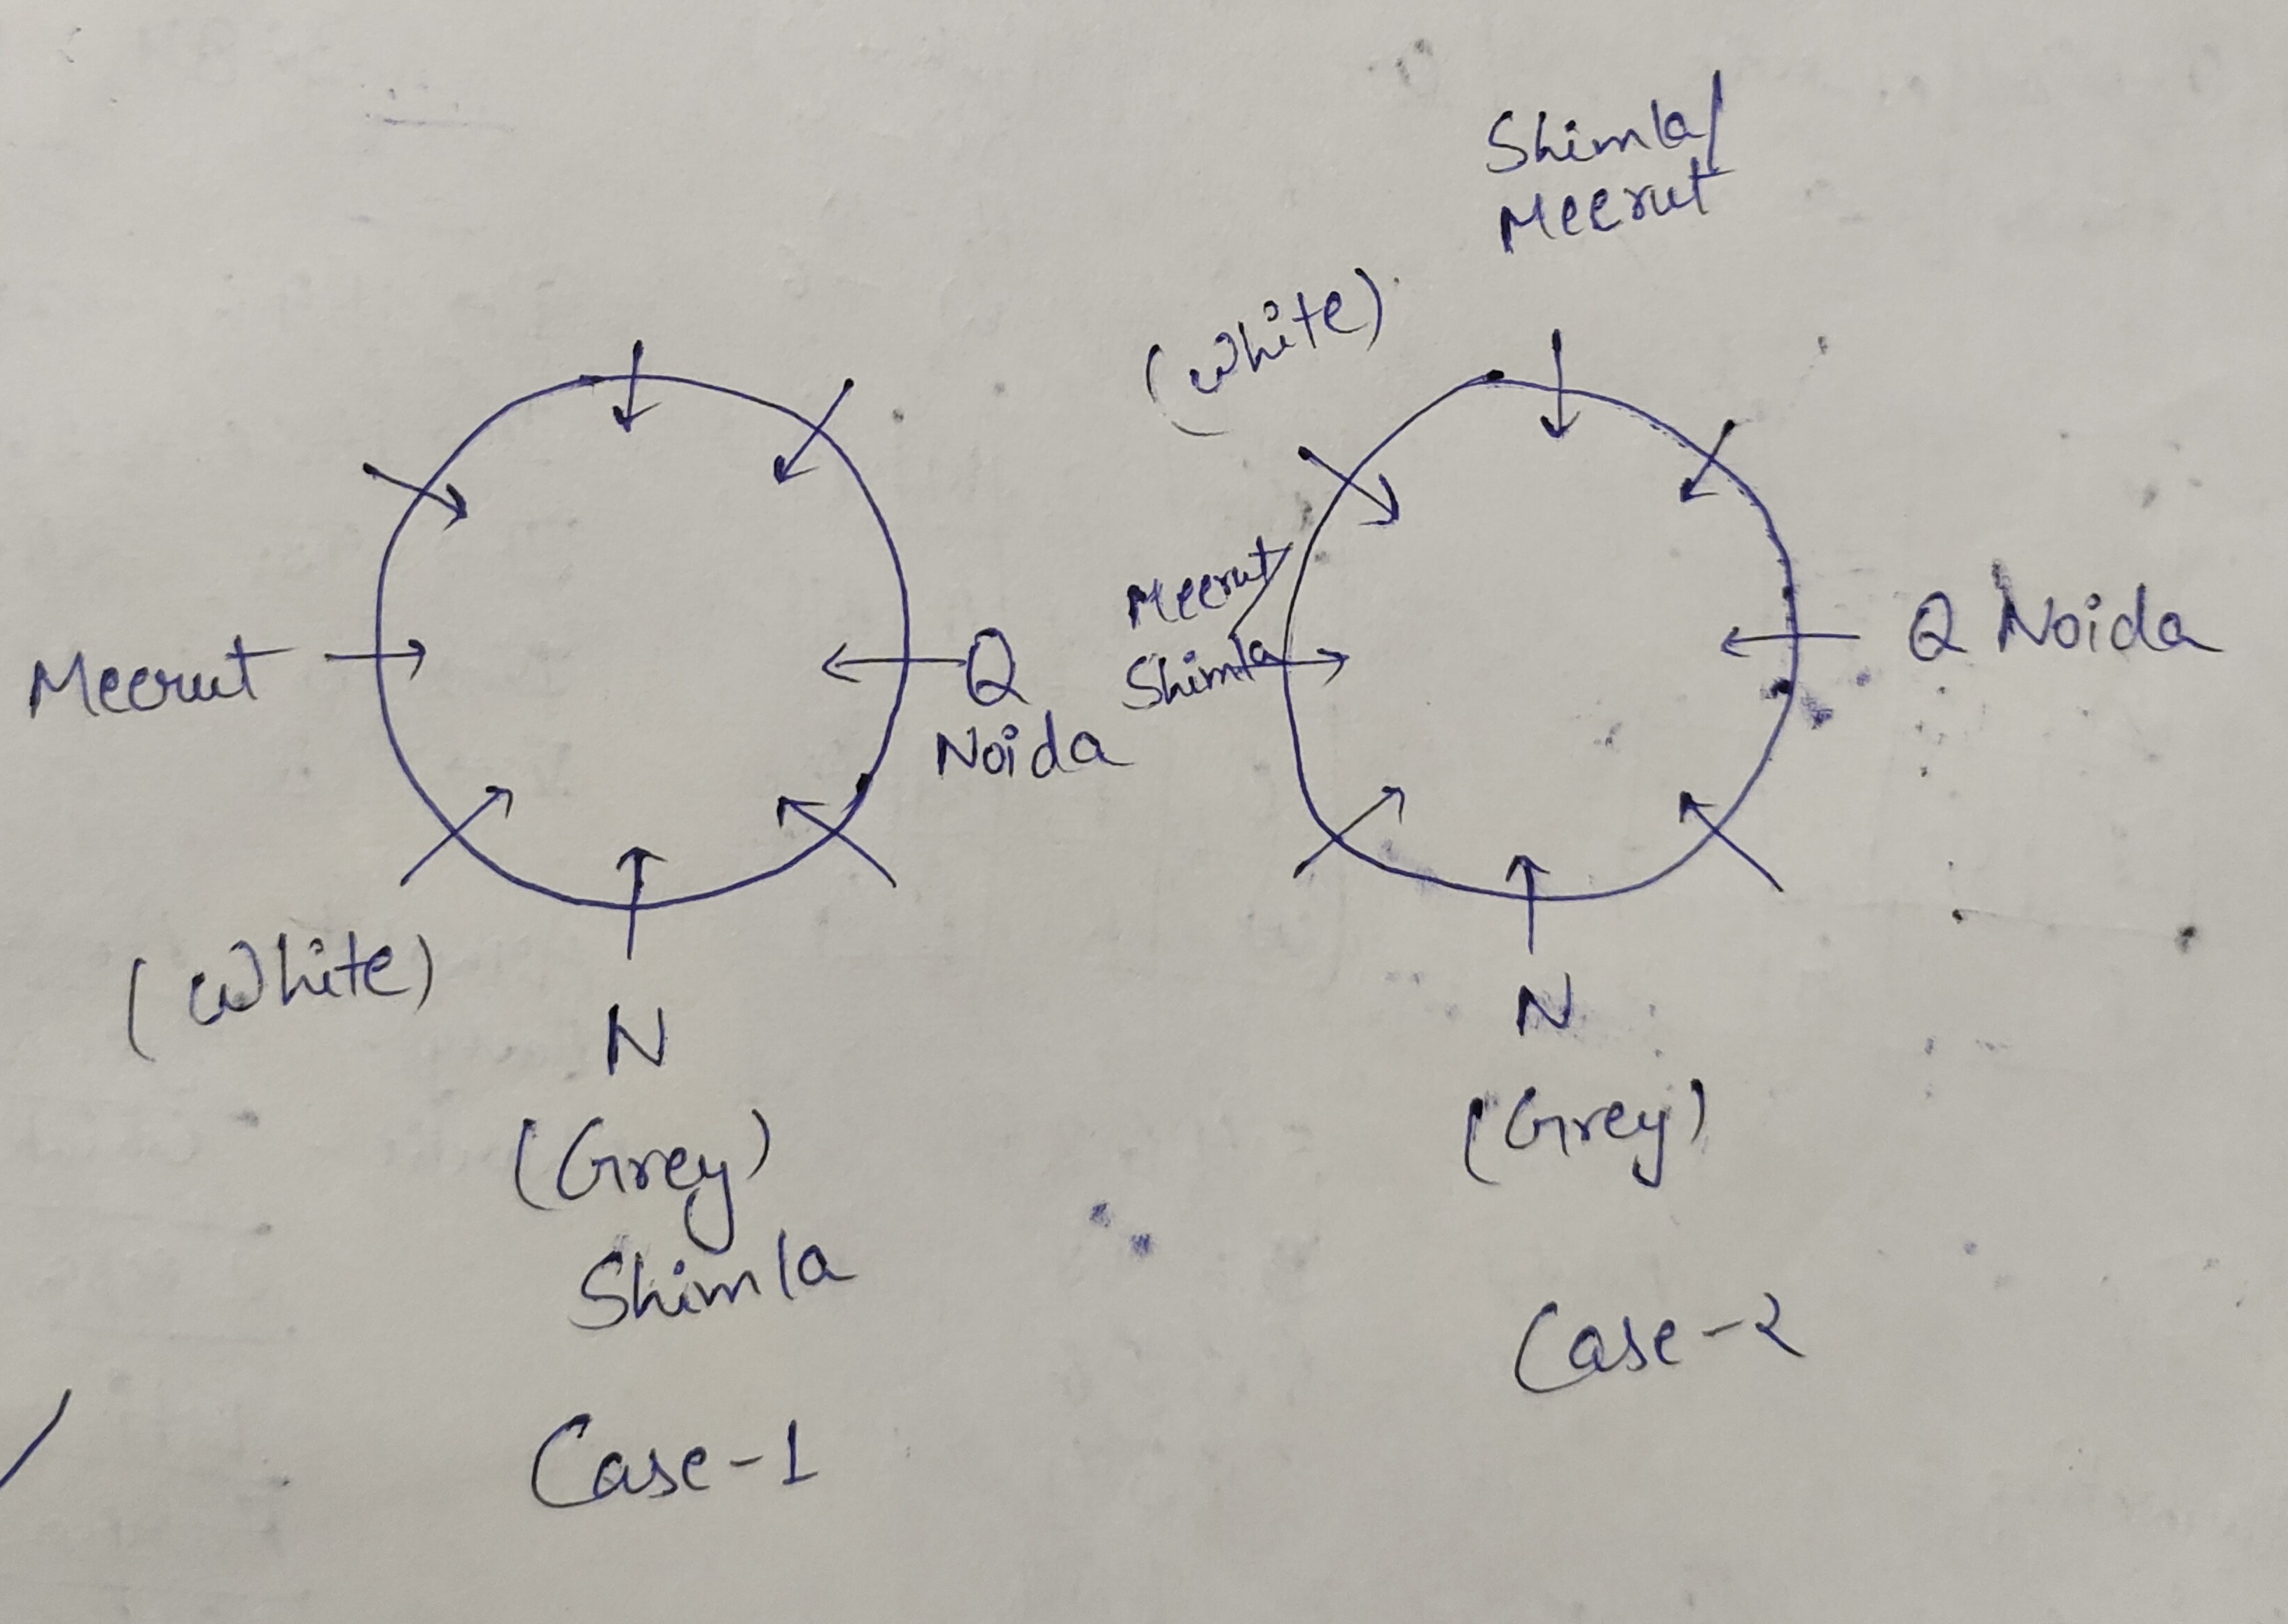 Meerut
Q
Noida
(White)
N
(Grey)
Shimla
Case-1
Shimla/
Meerut
(White)
Meerut/
Shimla
Q Noida
N
(Grey)
Case-2